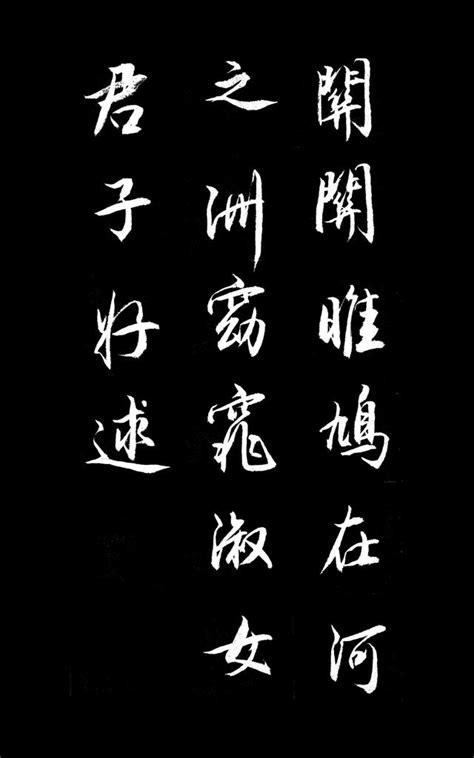 關關雎鳩在河
之洲窈窕淑女
君子好逑